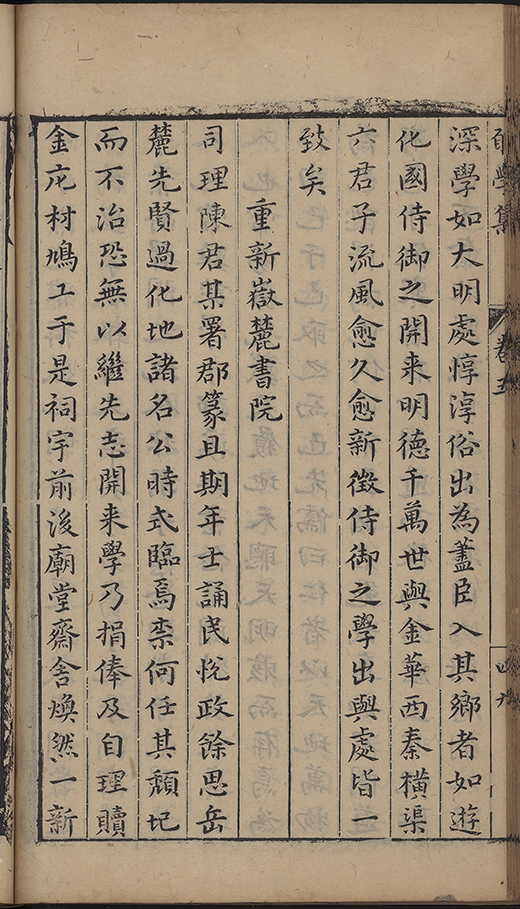 學集 卷五 四九
深學如大明處惇淳俗出為藎臣入其鄉者如遊
化國侍御之開來明德千萬世與金華西秦橫渠
六君子流風愈久愈新徵侍御之學出與處皆一
致矣
重新嶽麓書院
司理陳君某署郡篆且期年士誦民悅政餘思岳
麓先賢過化地諸名公時式臨焉柰何任其頹圮
而不治恐無以繼先志開來學乃捐俸及自理贖
金庀村鳩工于是祠宇前後廟堂齋舍煥然一新